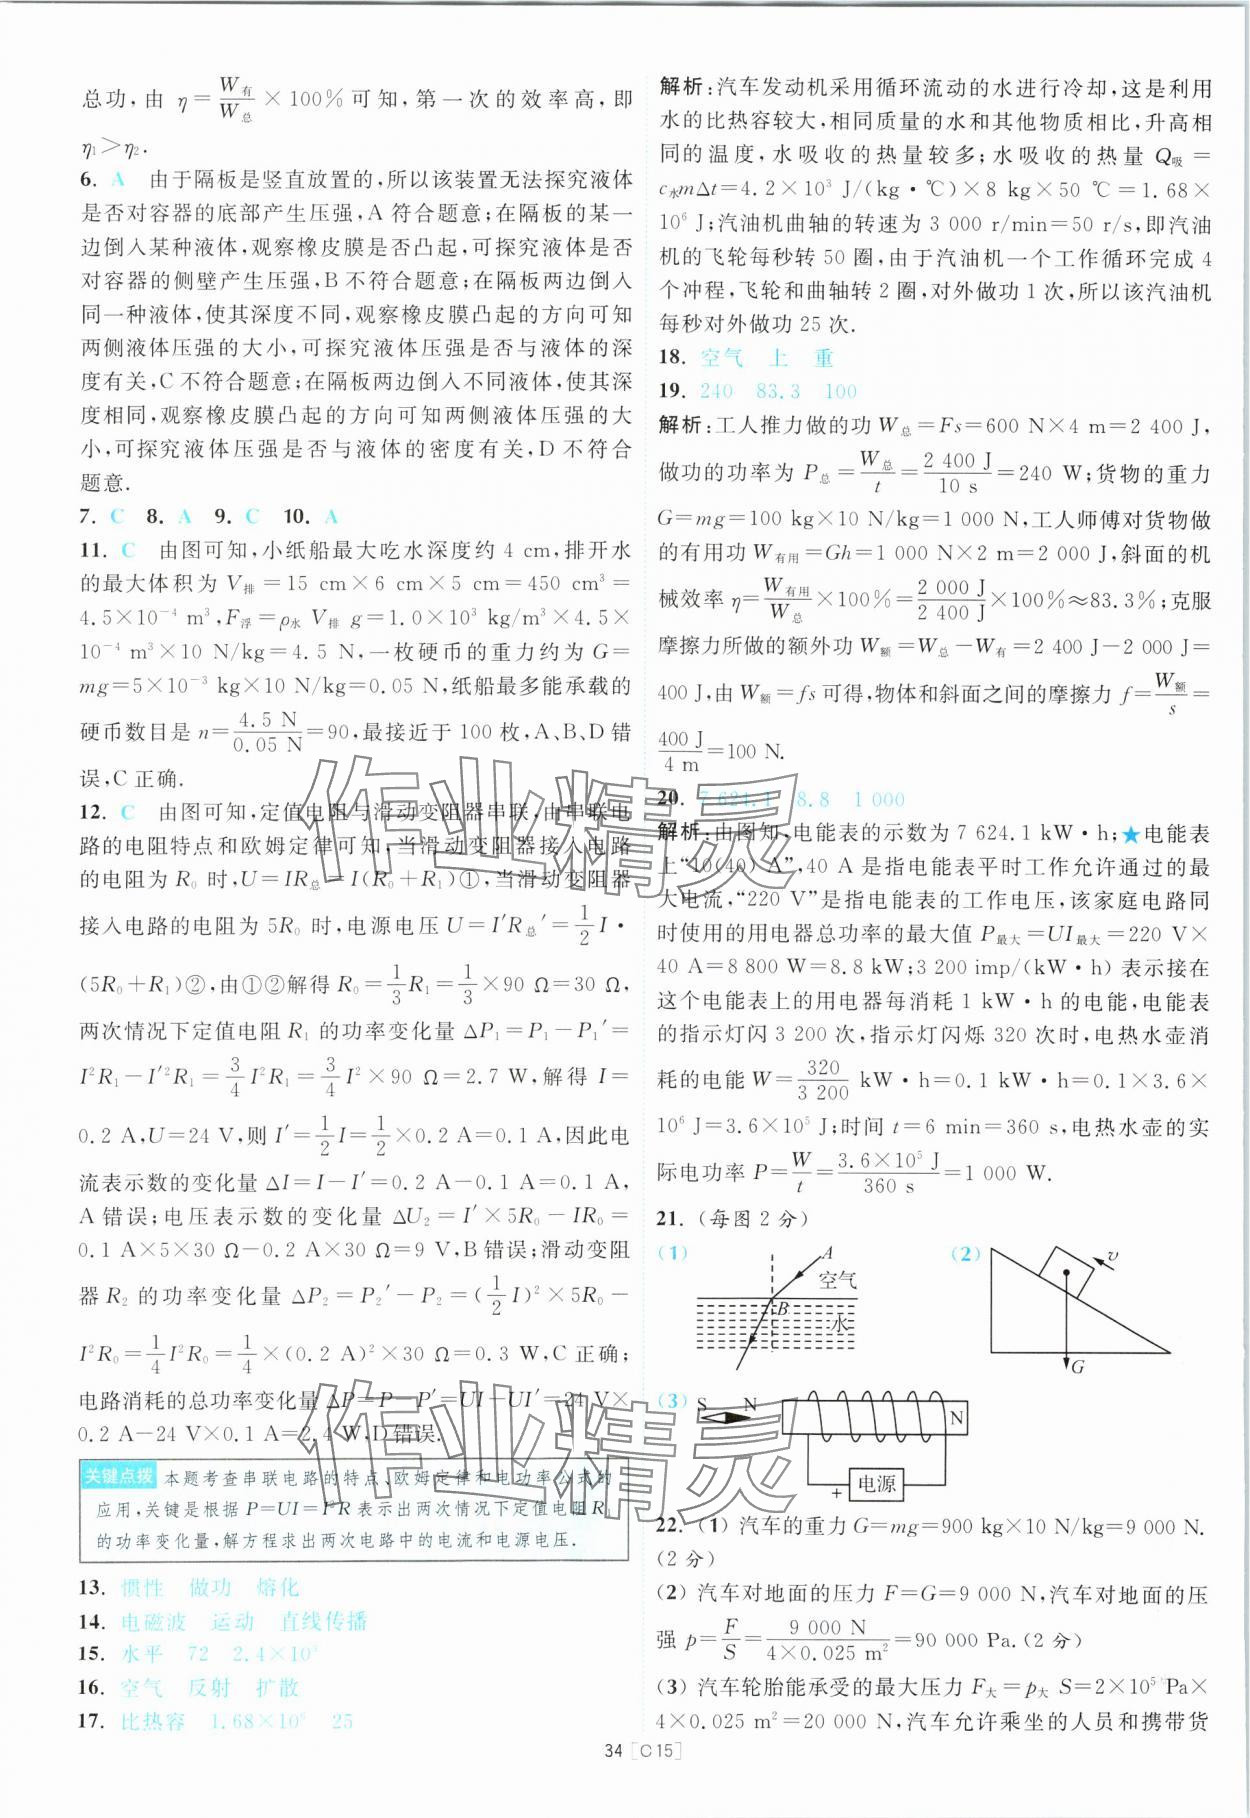 总功,由 η=W有/W总×100%可知,第一次的效率高,即
η₁>η₂.
6. A 由于隔板是竖直放置的,所以该装置无法探究液体
是否对容器的底部产生压强,A符合题意;在隔板的某一
边倒入某种液体,观察橡皮膜是否凸起,可探究液体是否
对容器的侧壁产生压强,B不符合题意;在隔板两边倒入
同一种液体,使其深度不同,观察橡皮膜凸起的方向可知
两侧液体压强的大小,可探究液体压强是否与液体的深
度有关,C不符合题意;在隔板两边倒入不同液体,使其深
度相同,观察橡皮膜凸起的方向可知两侧液体压强的大
小,可探究液体压强是否与液体的密度有关,D不符合
题意.
7. C 8. A 9. C 10. A
11. C 由图可知,小纸船最大吃水深度约4 cm,排开水
的最大体积为V排=15 cm×6 cm×5 cm=450 cm³=
4.5×10⁻⁴ m³,F浮=ρ水 V排 g=1.0×10³ kg/m³×4.5×
10⁻⁴ m³×10 N/kg=4.5 N,一枚硬币的重力约为G=
mg=5×10⁻³ kg×10 N/kg=0.05 N,纸船最多能承载的
硬币数目是n=4.5 N/0.05 N=90,最接近于100枚,A、B、D错
误,C正确.
12. C 由图可知,定值电阻与滑动变阻器串联,由串联电
路的电阻特点和欧姆定律可知,当滑动变阻器接入电路
的电阻为R₀时,U=IR总=I(R₀+R₁)①,当滑动变阻器
接入电路的电阻为5R₀时,电源电压U=I′R总′=1/2 I·
(5R₀+R₁)②,由①②解得R₀=1/3 R₁=1/3×90 Ω=30 Ω,
两次情况下定值电阻R₁的功率变化量ΔP₁=P₁-P₁′=
I²R₁-I′²R₁=3/4 I²R₁=3/4 I²×90 Ω=2.7 W,解得I=
0.2 A,U=24 V,则I′=1/2 I=1/2×0.2 A=0.1 A,因此电
流表示数的变化量ΔI=I-I′=0.2 A-0.1 A=0.1 A,
A错误;电压表示数的变化量ΔU₂=I′×5R₀-IR₀=
0.1 A×5×30 Ω-0.2 A×30 Ω=9 V,B错误;滑动变阻
器R₂的功率变化量ΔP₂=P₂′-P₂=(1/2 I)²×5R₀-
I²R₀=1/4 I²R₀=1/4×(0.2 A)²×30 Ω=0.3 W,C正确;
电路消耗的总功率变化量ΔP=P-P′=UI-UI′=24 V×
0.2 A-24 V×0.1 A=2.4 W,D错误.
关键点拨 本题考查串联电路的特点、欧姆定律和电功率公式的
应用,关键是根据P=UI=I²R表示出两次情况下定值电阻R₁
的功率变化量,解方程求出两次电路中的电流和电源电压.
13. 惯性 做功 熔化
14. 电磁波 运动 直线传播
15. 水平 72 2.4×10³
16. 空气 反射 扩散
17. 比热容 1.68×10⁶ 25
解析:汽车发动机采用循环流动的水进行冷却,这是利用
水的比热容较大,相同质量的水和其他物质相比,升高相
同的温度,水吸收的热量较多;水吸收的热量Q吸=
c水mΔt=4.2×10³ J/(kg·℃)×8 kg×50 ℃=1.68×
10⁶ J;汽油机曲轴的转速为3 000 r/min=50 r/s,即汽油
机的飞轮每秒转50圈,由于汽油机一个工作循环完成4
个冲程,飞轮和曲轴转2圈,对外做功1次,所以该汽油机
每秒对外做功25次.
18. 空气 上 重
19. 240 83.3 100
解析:工人推力做的功W总=Fs=600 N×4 m=2 400 J,
做功的功率为P总=W总/t=2 400 J/10 s=240 W;货物的重力
G=mg=100 kg×10 N/kg=1 000 N,工人师傅对货物做
的有用功W有用=Gh=1 000 N×2 m=2 000 J,斜面的机
械效率η=W有用/W总×100%=2 000 J/2 400 J×100%≈83.3%;克服
摩擦力所做的额外功W额=W总-W有=2 400 J-2 000 J=
400 J,由W额=fs可得,物体和斜面之间的摩擦力f=W额/s=
400 J/4 m=100 N.
20. 7 624.1 8.8 1 000
解析:由图知,电能表的示数为7 624.1 kW·h;★电能表
上“10(40) A”,40 A是指电能表平时工作允许通过的最
大电流,“220 V”是指电能表的工作电压,该家庭电路同
时使用的用电器总功率的最大值P最大=UI最大=220 V×
40 A=8 800 W=8.8 kW;3 200 imp/(kW·h)表示接在
这个电能表上的用电器每消耗1 kW·h的电能,电能表
的指示灯闪3 200次,指示灯闪烁320次时,电热水壶消
耗的电能W=320/3 200 kW·h=0.1 kW·h=0.1×3.6×
10⁶ J=3.6×10⁵ J;时间t=6 min=360 s,电热水壶的实
际电功率P=W/t=3.6×10⁵ J/360 s=1 000 W.
21. (每图2分)
(1) A 空气 B 水
(2) v G
(3) S N N
+ 电源
22. (1) 汽车的重力G=mg=900 kg×10 N/kg=9 000 N.
(2分)
(2) 汽车对地面的压力F=G=9 000 N,汽车对地面的压
强p=F/S=9 000 N/4×0.025 m²=90 000 Pa.(2分)
(3) 汽车轮胎能承受的最大压力F大=p大 S=2×10⁵ Pa×
4×0.025 m²=20 000 N,汽车允许乘坐的人员和携带货
34 [C15]
作业精灵
作业精灵